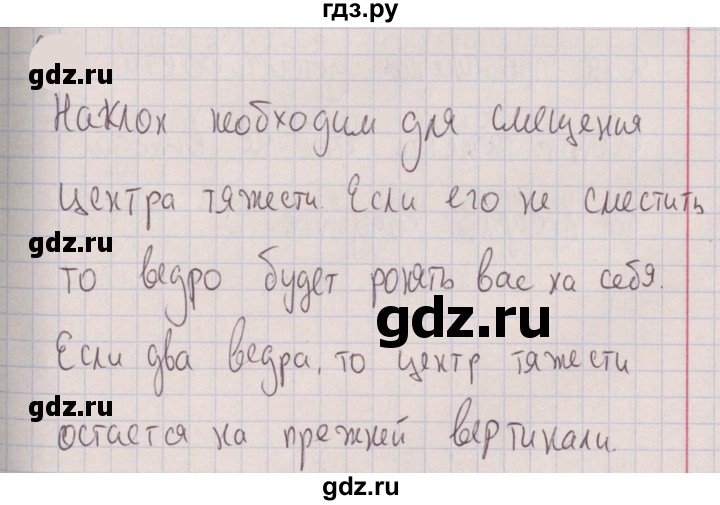 гдз.ру
gdz.ru
Наклон необходим для смещения
центра тяжести. Если его не сместить
gdz.ru
то ведро будет ронять вас на себя.
gdz.ru
Если два ведра, то центр тяжести
gdz.ru
остается на прежней вертикали.
gdz.ru